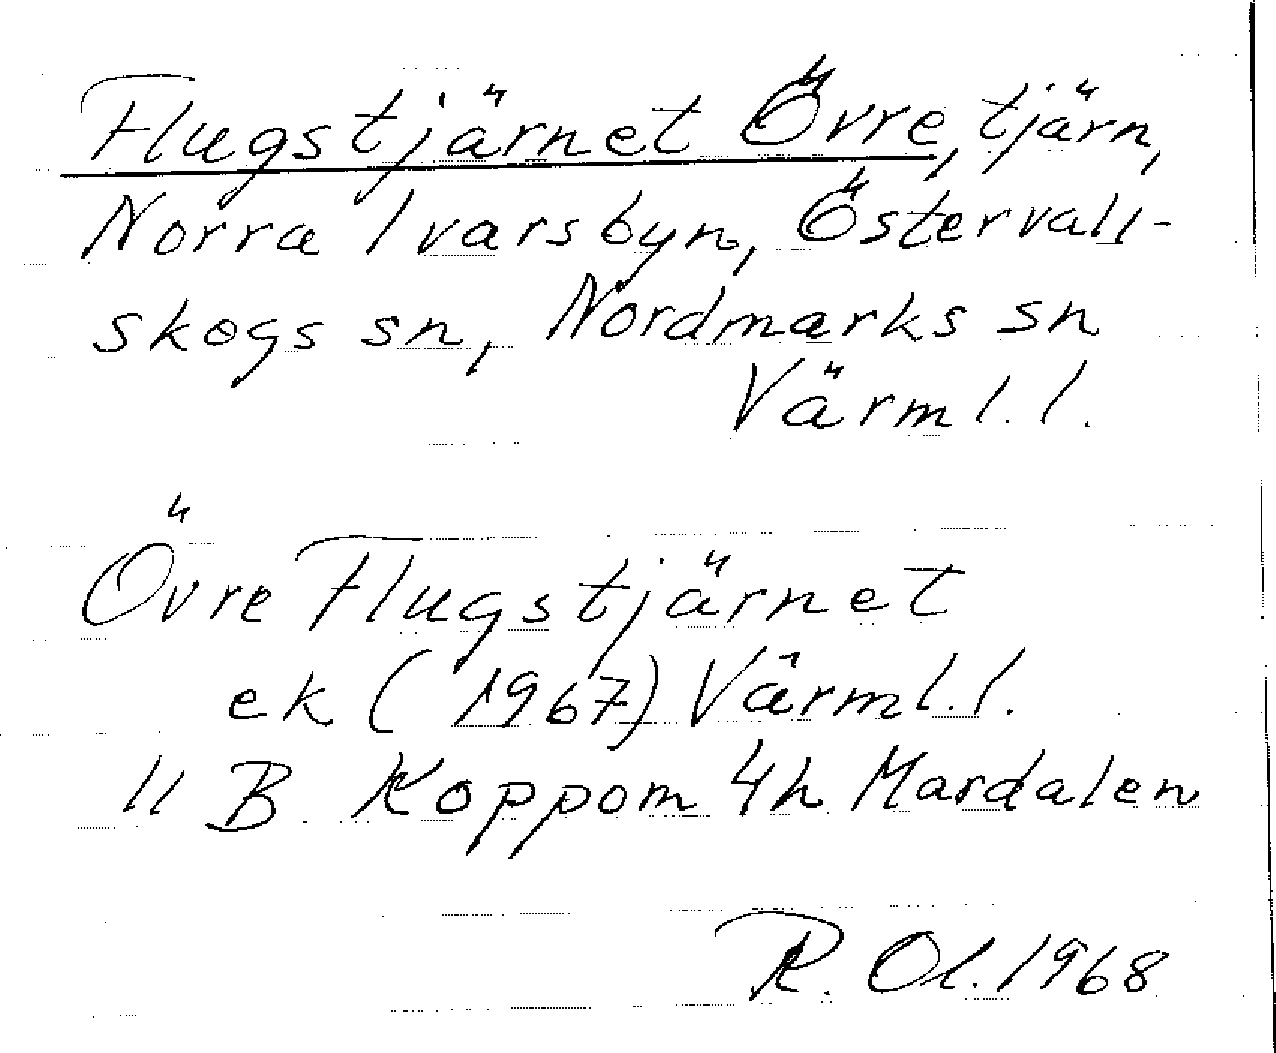 Flugstjärnet Övre, tjärn,
Norra Ivarsbyn, Östervall-
skogs sn, Nordmarks sn
Värml. l.
Övre Flugstjärnet
ek (1967) Värml. l.
11 B Koppom 4h Mardalen
R. Ol. 1968